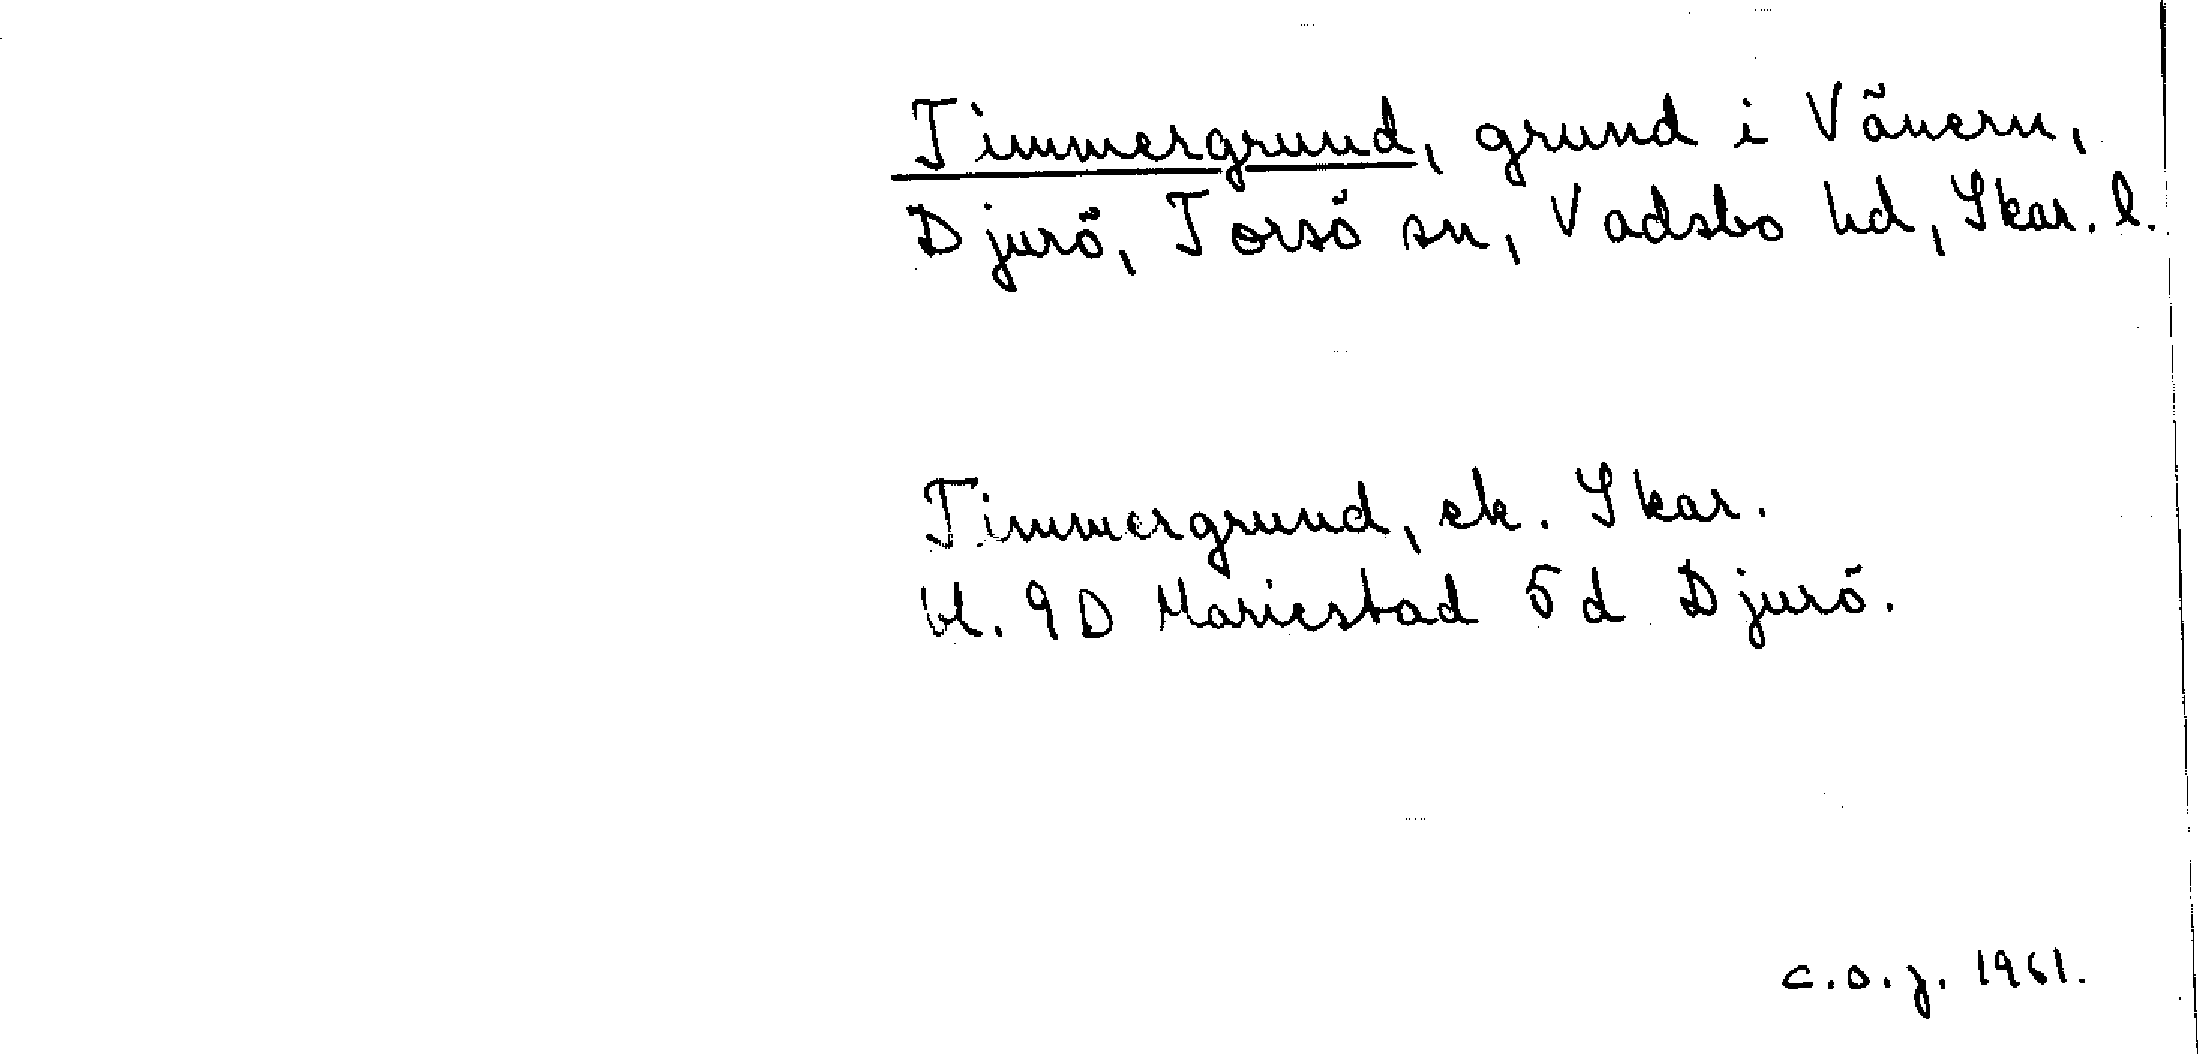 Timmergrund, grund i Vänern,
Djurö, Torsö sn, Vadsbo hd, Skar. l.
Timmergrund, ek. Skar.
bl. 9D Mariestad 5d Djurö.
c.o.j. 1961.